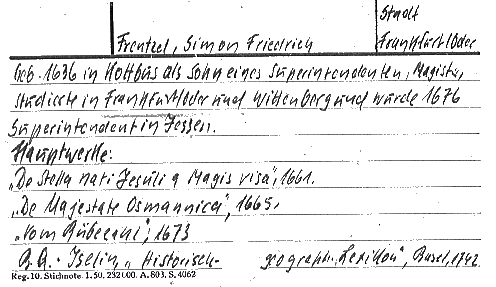 Stadt
Frentzel, Simon Friedrich Frankfurt/Oder
Geb. 1636 in Kottbus als Sohn eines Superintendenten, Magister,
studierte in Frankfurt/Oder und Wittenberg und wurde 1676
Superintendent in Jessen.
Hauptwerke:
„De Stella nati Jesuli a Magis visa", 1661.
„De Majestate Osmannica", 1665,
„Vom Rübezahl", 1673
Iselin, „Historisch- geograph. Lexikon", Basel, 1742
Reg. 10. Stichnote. 1. 50. 232000. A. 803. S. 4062